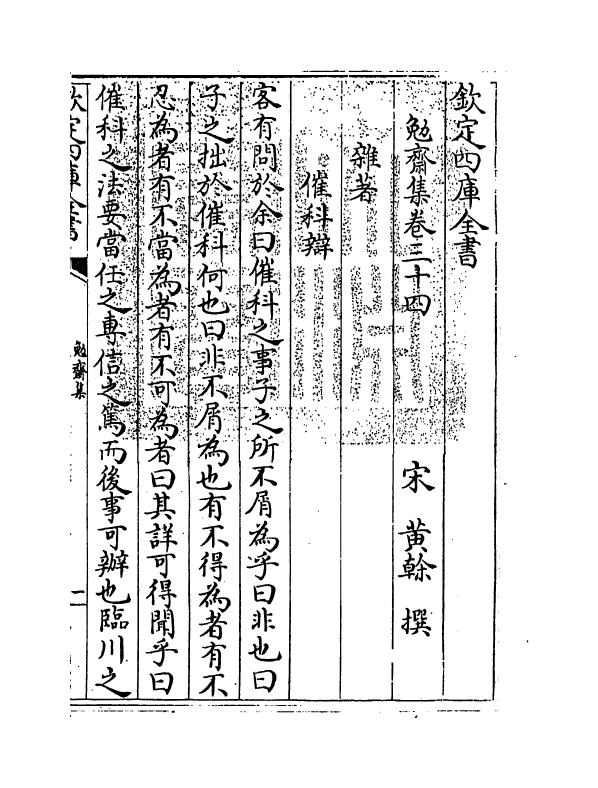 欽定四庫全書
勉齋集卷三十四
宋 黃榦 撰
雜著
催科辯
客有問於余曰催科之事子之所不屑為乎曰非也曰
子之拙於催科何也曰非不屑為也有不得為者有不
忍為者有不當為者有不可為者曰其詳可得聞乎曰
催科之法要當任之專信之篤而後事可辦也臨川之
欽定四庫全書
勉齋集